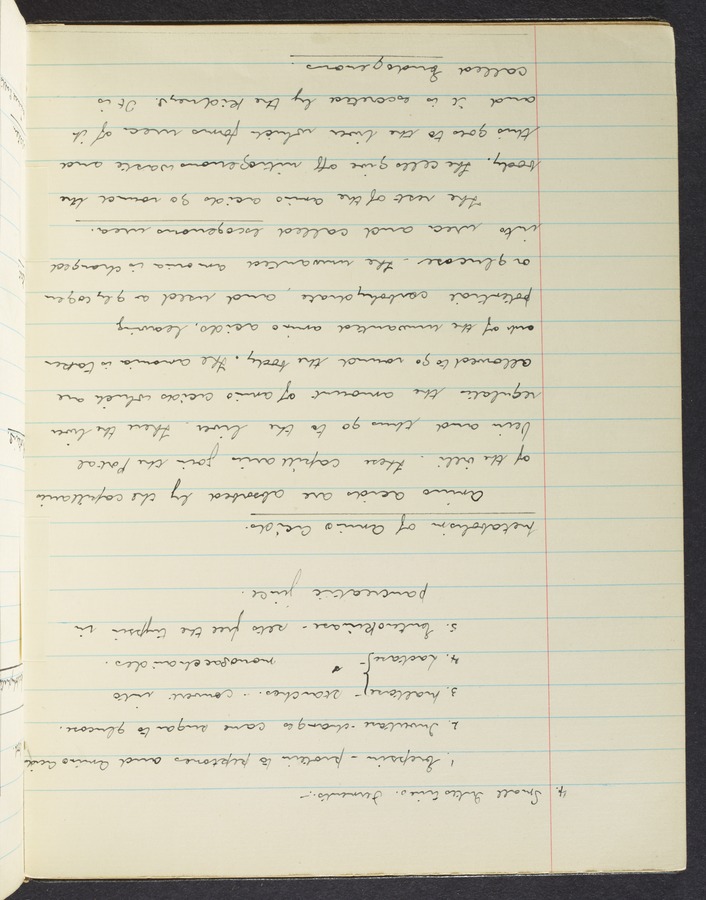 4. Small Intestines. Ferments:-
1. Erepsin - protein to peptones and amino acids
2. Invertase - changes cane sugar to glucose.
3. Maltase - starches - convert into
4. Lactase - monosaccharides.
5. Enterokinase - sets free the trypsin in
pancreatic juice.
Metabolism of Amino Acids.
Amino acids are absorbed by the capillaries
of the villi. These capillaries join the Portal
Vein and thus go to the liver. Then the liver
regulates the amount of amino acids which are
allowed to go round the body. The amonia is taken
out of the unwanted amino acids, leaving
potential carbohydrate, and used as glycogen
or glucose - the unwanted amonia is changed
into urea and called exogenous urea.
The rest of the amino acids go round the
body. The cells give off nitrogenous waste and
this goes to the liver which forms urea of it
and it is excreted by the kidneys. It is
called Endogenous.